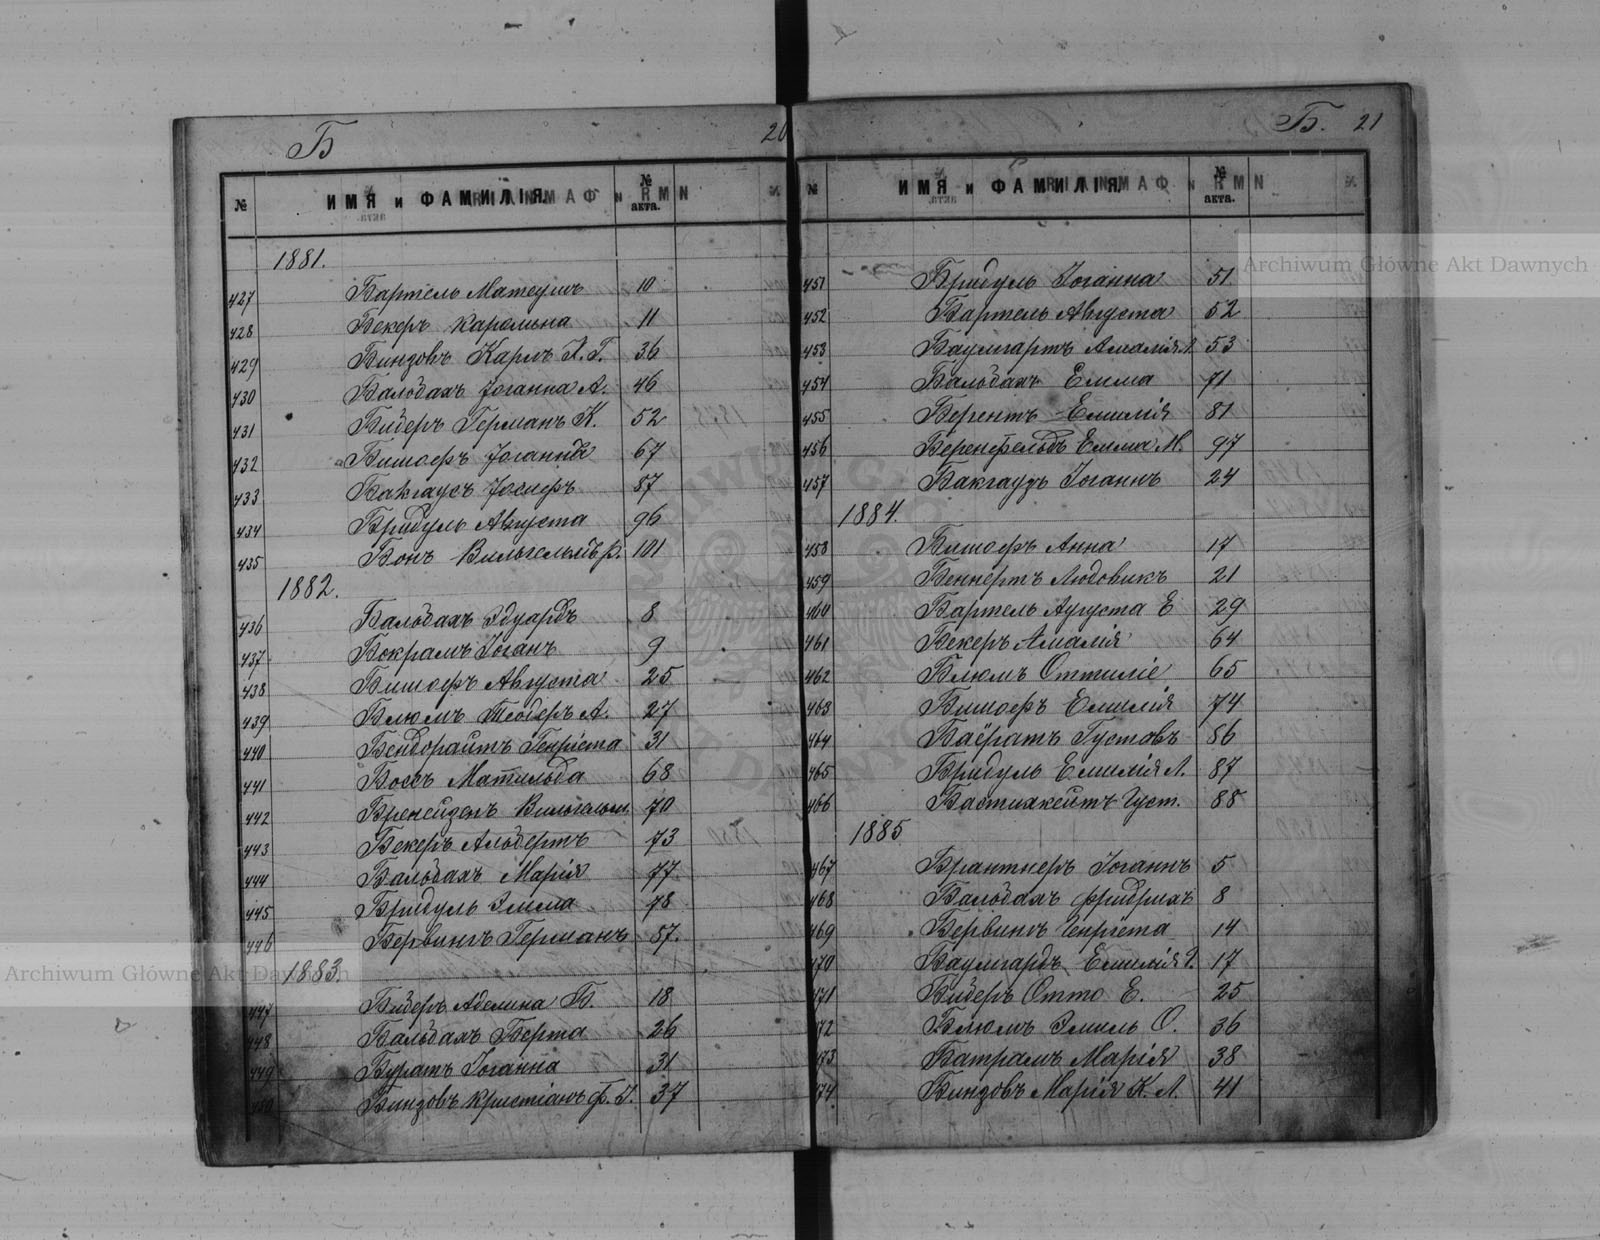 Б 20
№ ИМЯ и ФАМИЛІЯ № акта.
1881.
427 Бартель Матеушъ 10
428 Бекеръ Каролина 11
429 Бинзовъ Карлъ Л. Г. 36
430 Вальдахъ Іоганна А. 46
431 Бидеръ Германъ К. 52
432 Бишофъ Іоганна 67
433 Бакгаусъ Іосифъ 87
434 Бридуль Августа 96
435 Бонъ Вильгельмъ р. 101
1882.
436 Бальдахъ Эдуардъ 8
437 Бокрамъ Іоганъ 9
438 Бишофъ Августа 25
439 Блюмъ Теодоръ А. 27
440 Бендорайтъ Генріета 31
441 Босъ Матильда 68
442 Вильгельм. 70
443 Бекеръ Альбертъ 73
444 Бальдахъ Марія 77
445 Бридуль Эмма 78
446 Бервингъ Германъ 87.
1883.
447 Бидеръ Аделина Б. 18
448 Бальдахъ Берта 26
449 Буратъ Іоганна 31
450 Бинзовъ Кристіанъ Ф. Г. 37
Б. 21
№ ИМЯ и ФАМИЛІЯ № акта.
451 Бридуль Іоганна 51
452 Бартель Августа 52
453 Баумгартъ Амалія Л. 53
454 Бальдахъ Емма 71
455 Берентъ Емилія 81
456 Беренфельдъ Емма М. 97
457 Бакгаузъ Іоганнъ 24
1884.
458 Бишофъ Анна 17
459 Беннертъ Людовикъ 21
460 Бартель Аугуста Е 29
461 Бекеръ Амалія 64
462 Блюмъ Оттиліе 65
463 Бишофъ Емилія 74
464 Баёратъ Густавъ 86
465 Бридуль Емилія Л. 87
466 Бастикейтъ Густ. 88
1885
467 Брантнеръ Іоганнъ 5
468 Бальдахъ Фридрихъ 8
469 Бервингъ Генріета 14
470 Баумгардъ Емилія 17
471 Бидеръ Отто Е. 25
472 Блюмъ Эмиль О. 36
473 Батрамъ Марія 38
474 Бинзовъ Марія К. Л. 41
Archiwum Główne Akt Dawnych
Archiwum Główne Akt Dawnych